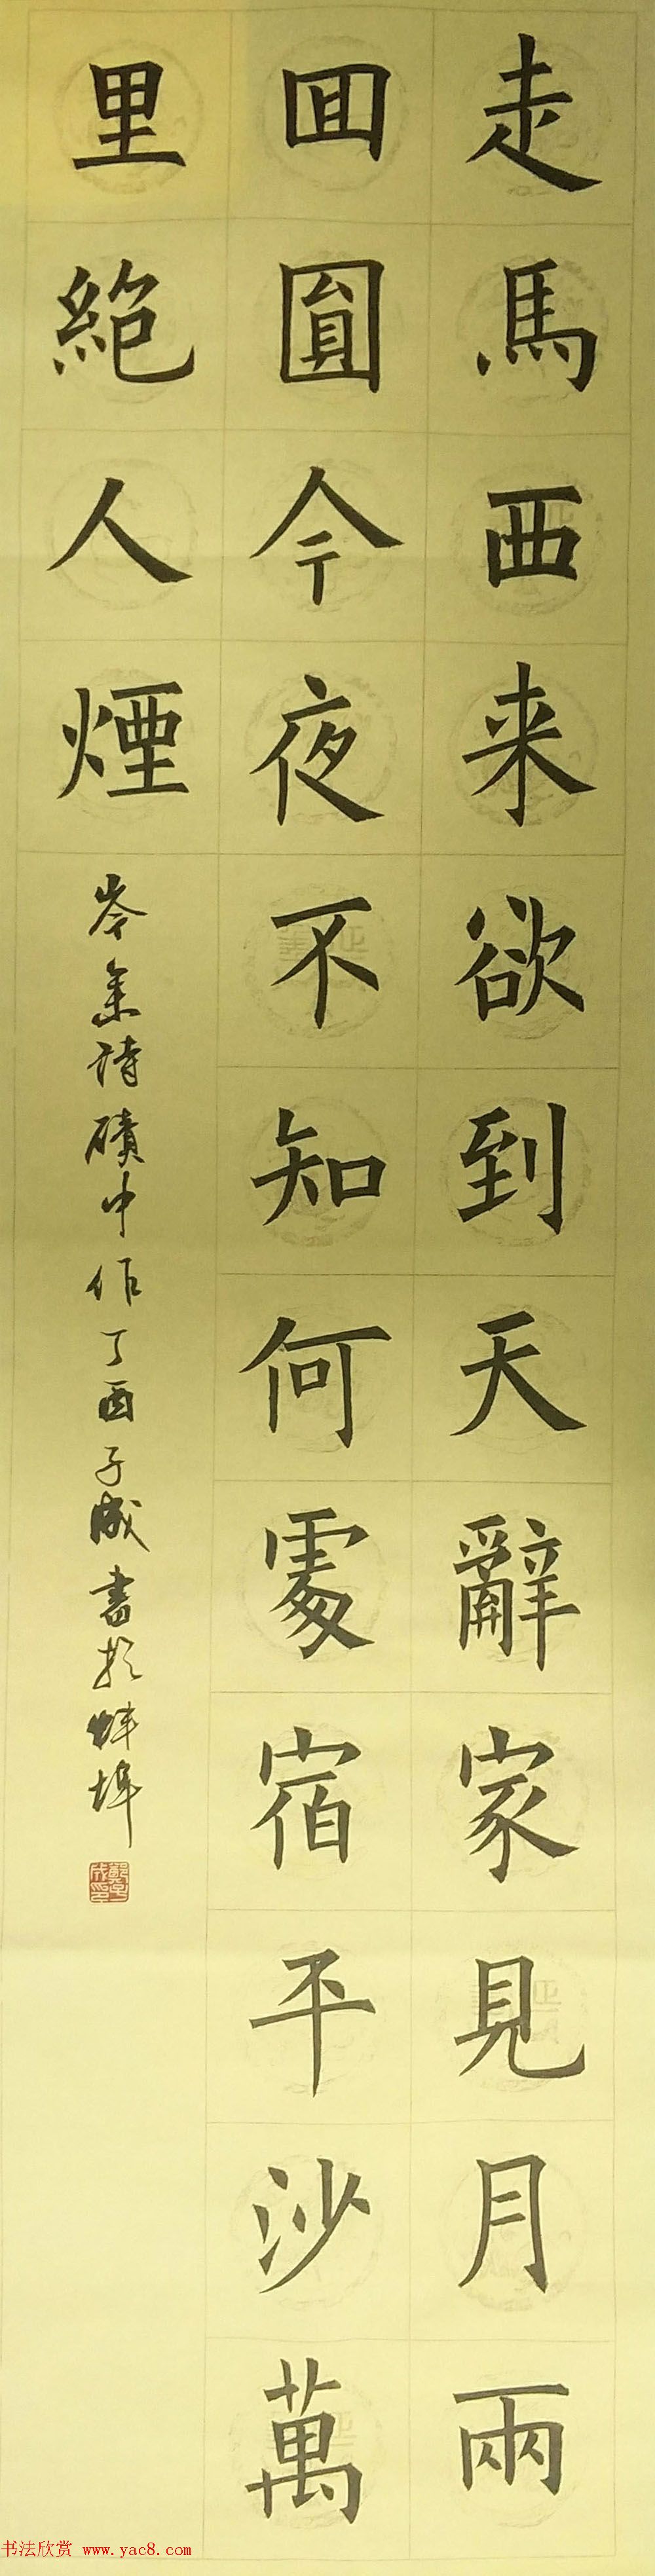 走馬西来欲到天辭家見月兩
囬圎今夜不知何處宿平沙萬
里絶人煙
岑參詩磧中作丁酉子成書於蚌埠
书法欣赏 www.yac8.com